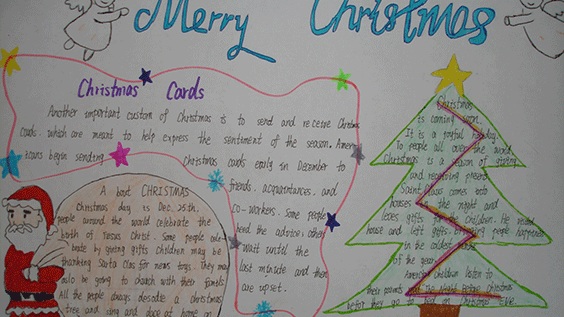 Merry Christmas
Christmas Cards
Another important custom of Christmas is to send and receive Christmas
cards. which are meant to help express the sentiment of the season. Amer
icans begin sending Christmas cards early in December to
friends, acquaintances, and
co-workers. Some people
heed the advice; other
wait until the
last minute and then
are upset.
A bout CHRISTMAS
Christmas day is Dec. 25th.
people around the world celebrate the
birth of Jesus Christ. Some people
by giving gifts Children may be
thanking Santa Clas for news toys. They may
also be going to church with their famils
All the people always a christmas
tree and and dace at home on
Christmas
is coming soon.
It is a joyful holiday
To people all over the world
Christmas is a season of giving
and receiving present
Saint Claus comes into
houses in the night and
leves gift for the children. He
house and left gifts people happiness
in the coldest
of the year.
American children listen to
their parents the night before christmas
before they go to bed on Christmas Eve.